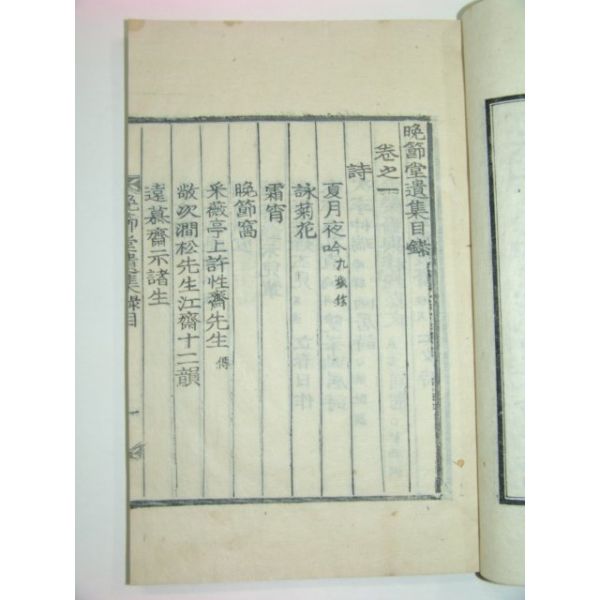 晩節堂遺集目錄
卷之一
詩
夏月夜吟 九歲作
詠菊花
霜宵
晩節窩
采薇亭上許性齋先生 傳
敬次澗松先生江齋十二韻
遠慕齋示諸生
晩節堂遺集 目錄 一